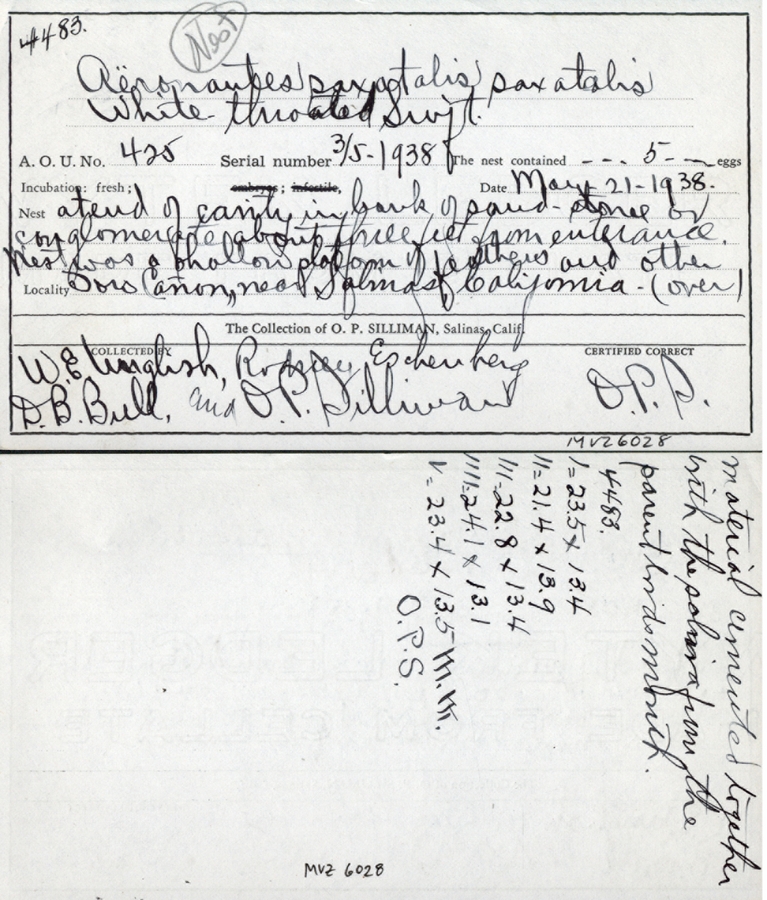 #483.
Nest
Aëronautes saxatalis saxatalis
White-throated Swift.
A. O. U. No. 425 Serial number 3/5-1938 The nest contained --- 5 -- eggs
Incubation: fresh; embryos; infertile, Date May-21-1938.
Nest at end of cavity in bank of sand-stone or
conglomerate about three feet from enterance.
Nest was a shallow platform of feathers and other
Locality Cañon, near California - (over)
The Collection of O. P. SILLIMAN, Salinas, Calif.
COLLECTED BY CERTIFIED CORRECT
W. E. Unglish, Rodney Eschenberg
D. B. Bull, and O. P. Silliman O. P. S.
MVZ 6028
material cemented together
with the saliva from the
parent birds mouth.
4483
I = 23.5 x 13.4
II = 21.4 x 13.9
III = 22.8 x 13.4
IIII = 24.1 x 13.1
V = 23.4 x 13.5 m.m
O.P.S.
MVZ 6028